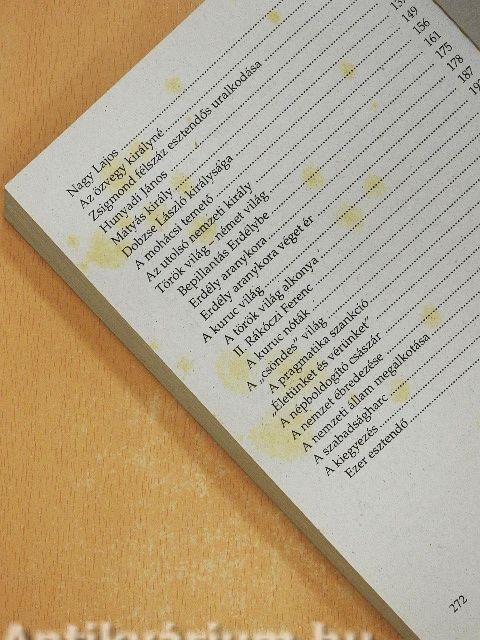 Nagy Lajos
Az özvegy királyné
Zsigmond félszáz esztendős uralkodása
Hunyadi János
Mátyás király
Dobzse László királysága
A mohácsi temető
Az utolsó nemzeti király
Török világ – német világ
Bepillantás Erdélybe
Erdély aranykora
Erdély aranykora véget ér
A kuruc világ
A török világ alkonya
II. Rákóczi Ferenc
A kuruc nóták
A „csöndes" világ
A pragmatika szankció
„Életünket és vérünket"
A népboldogító császár
A nemzet ébredezése
A nemzeti állam megalkotása
A szabadságharc
A kiegyezés
Ezer esztendő
149
156
161
175
178
187
272
Antikvárium.hu